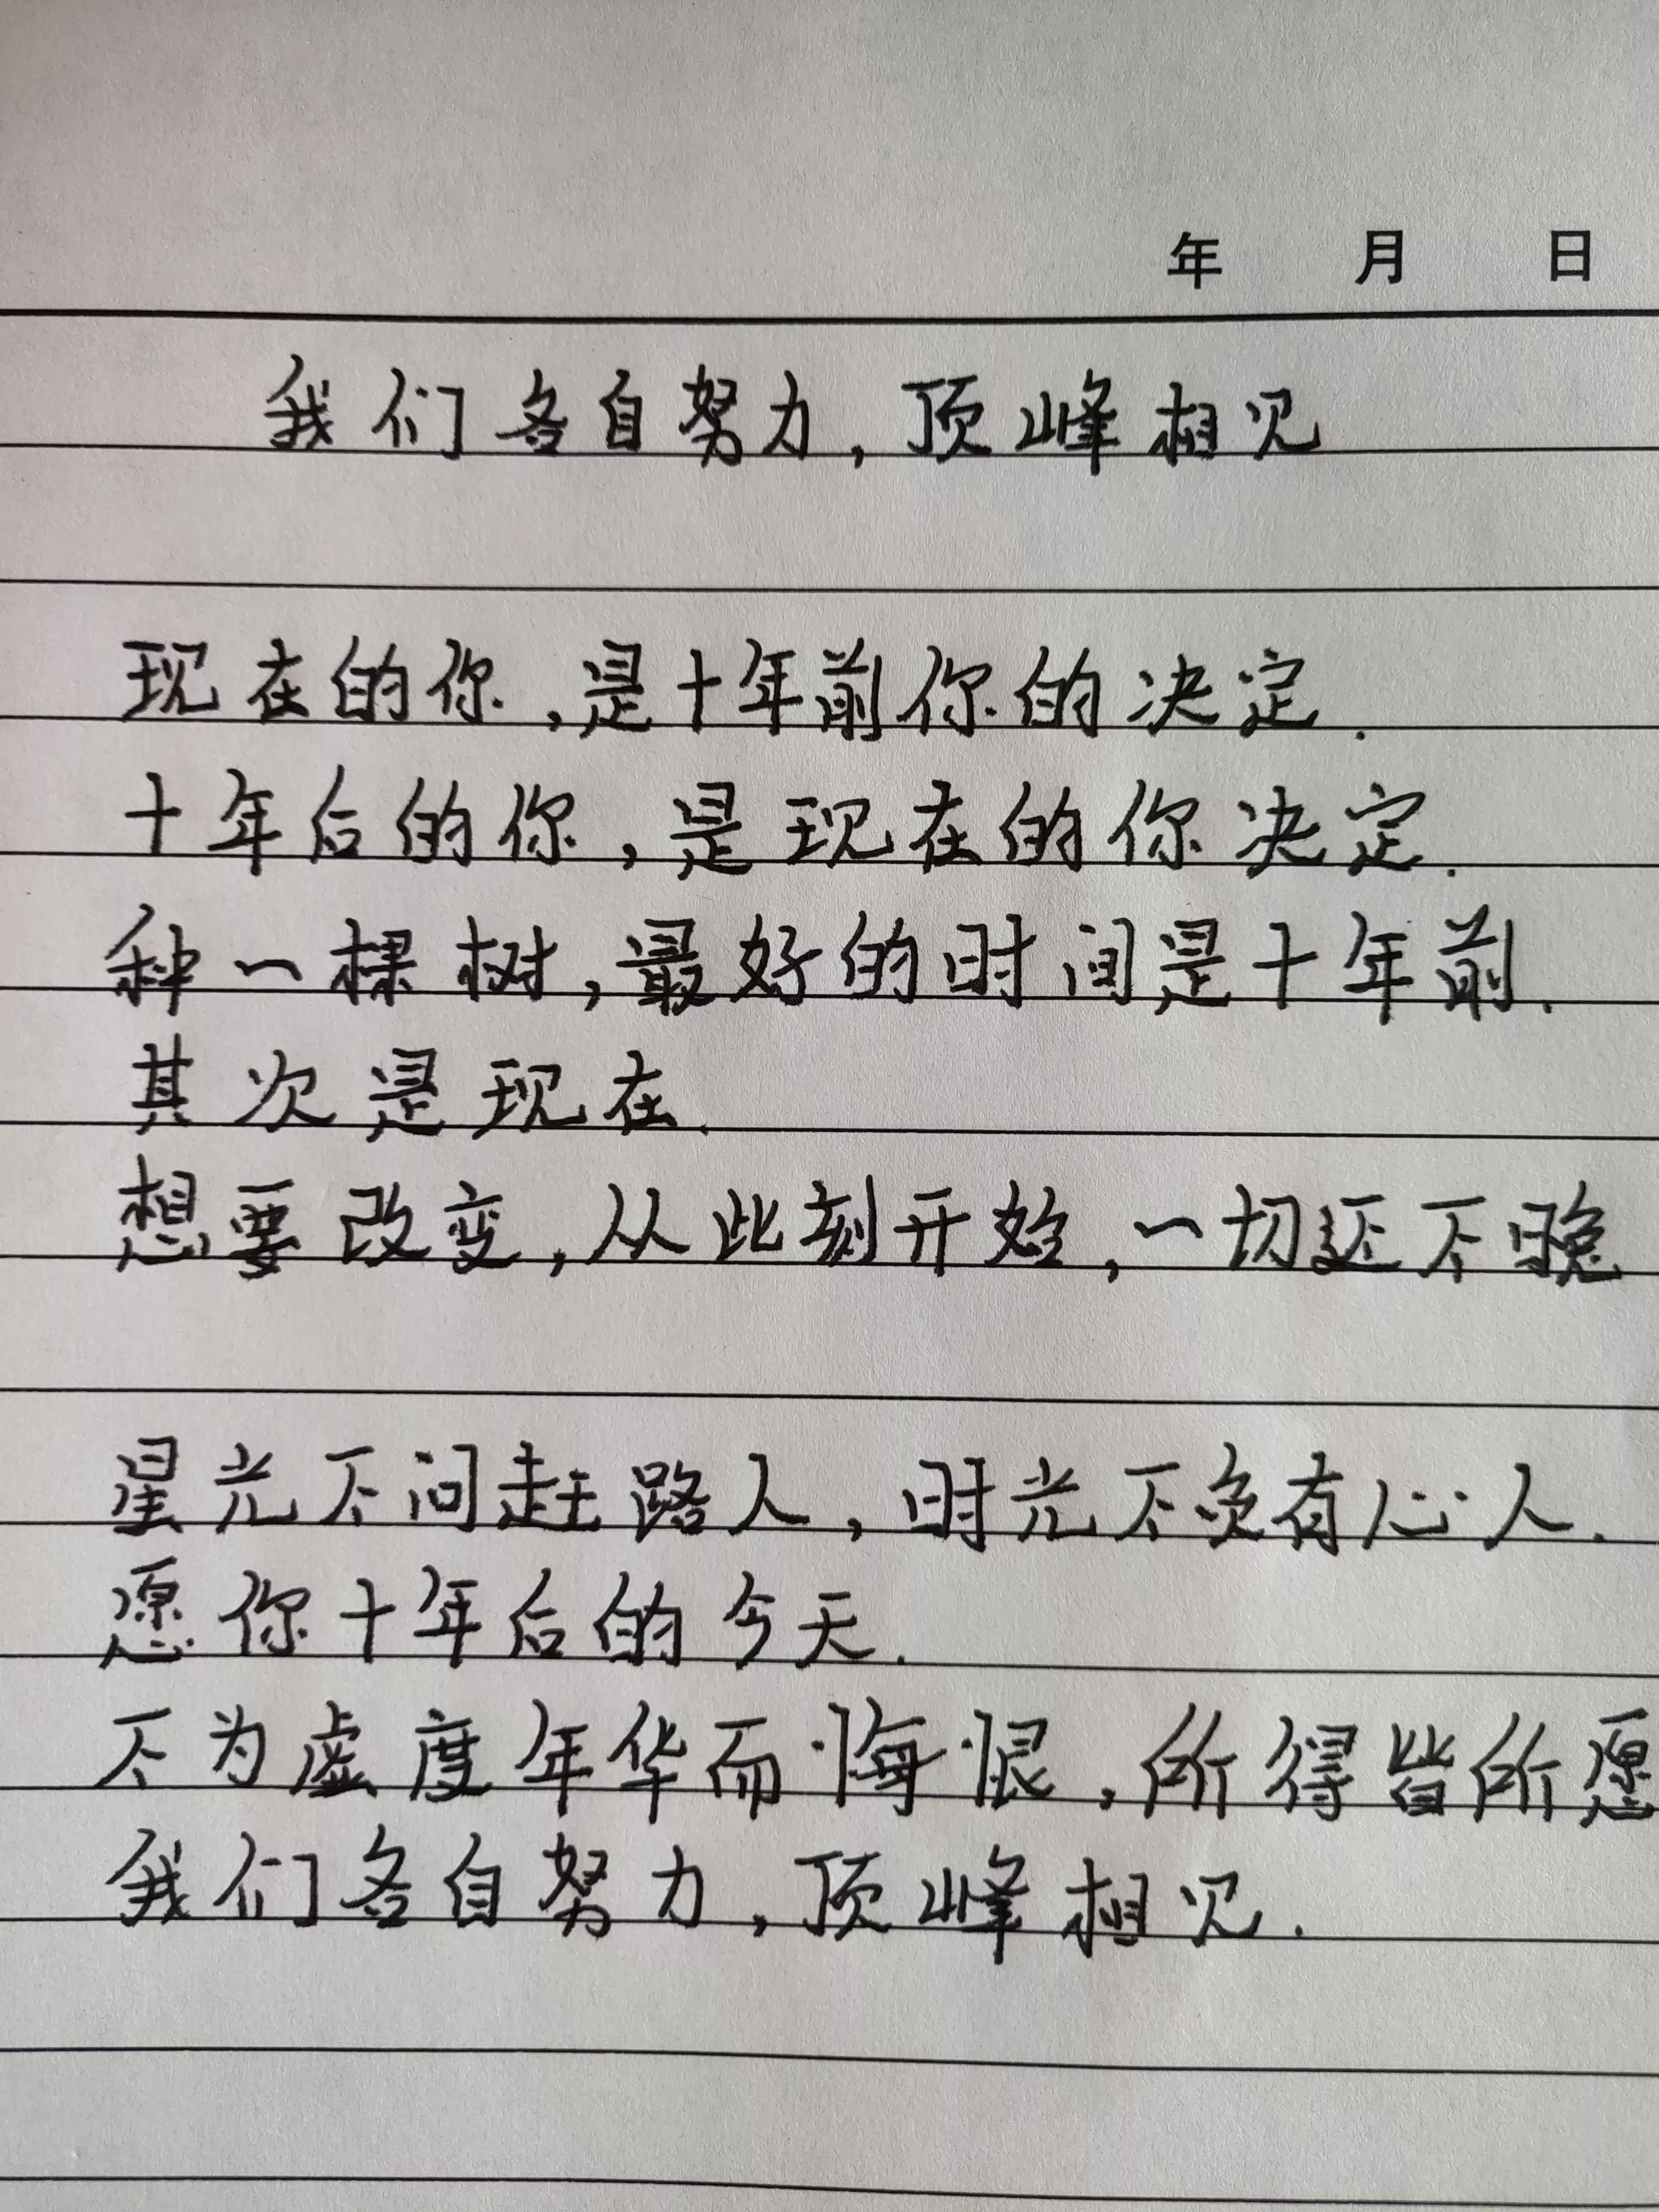 年 月 日
我们各自努力,顶峰相见
现在的你,是十年前你的决定.
十年后的你,是现在的你决定.
种一棵树,最好的时间是十年前.
其次是现在.
想要改变,从此刻开始,一切还不晚
星光不问赶路人,时光不负有心人.
愿你十年后的今天.
不为虚度年华而悔恨,所得皆所愿
我们各自努力,顶峰相见.